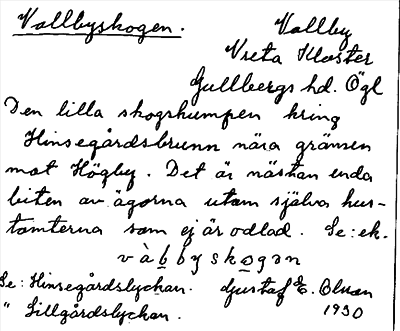 Vallbyskogen. Vallby
Vreta Kloster
Gullbergs hd. Ögl
Den lilla skogskumpen kring
Hinsegårdsbrunn nära gränsen
mot Högby. Det är nästan enda
biten av ägorna utom själva hus-
tomterna som ej är odlad. Se: ek.
v à b b y s k o g ə n
Se: Hinsegårdslyckan. Gustaf E. Olsson
" Lillgårdslyckan. 1930